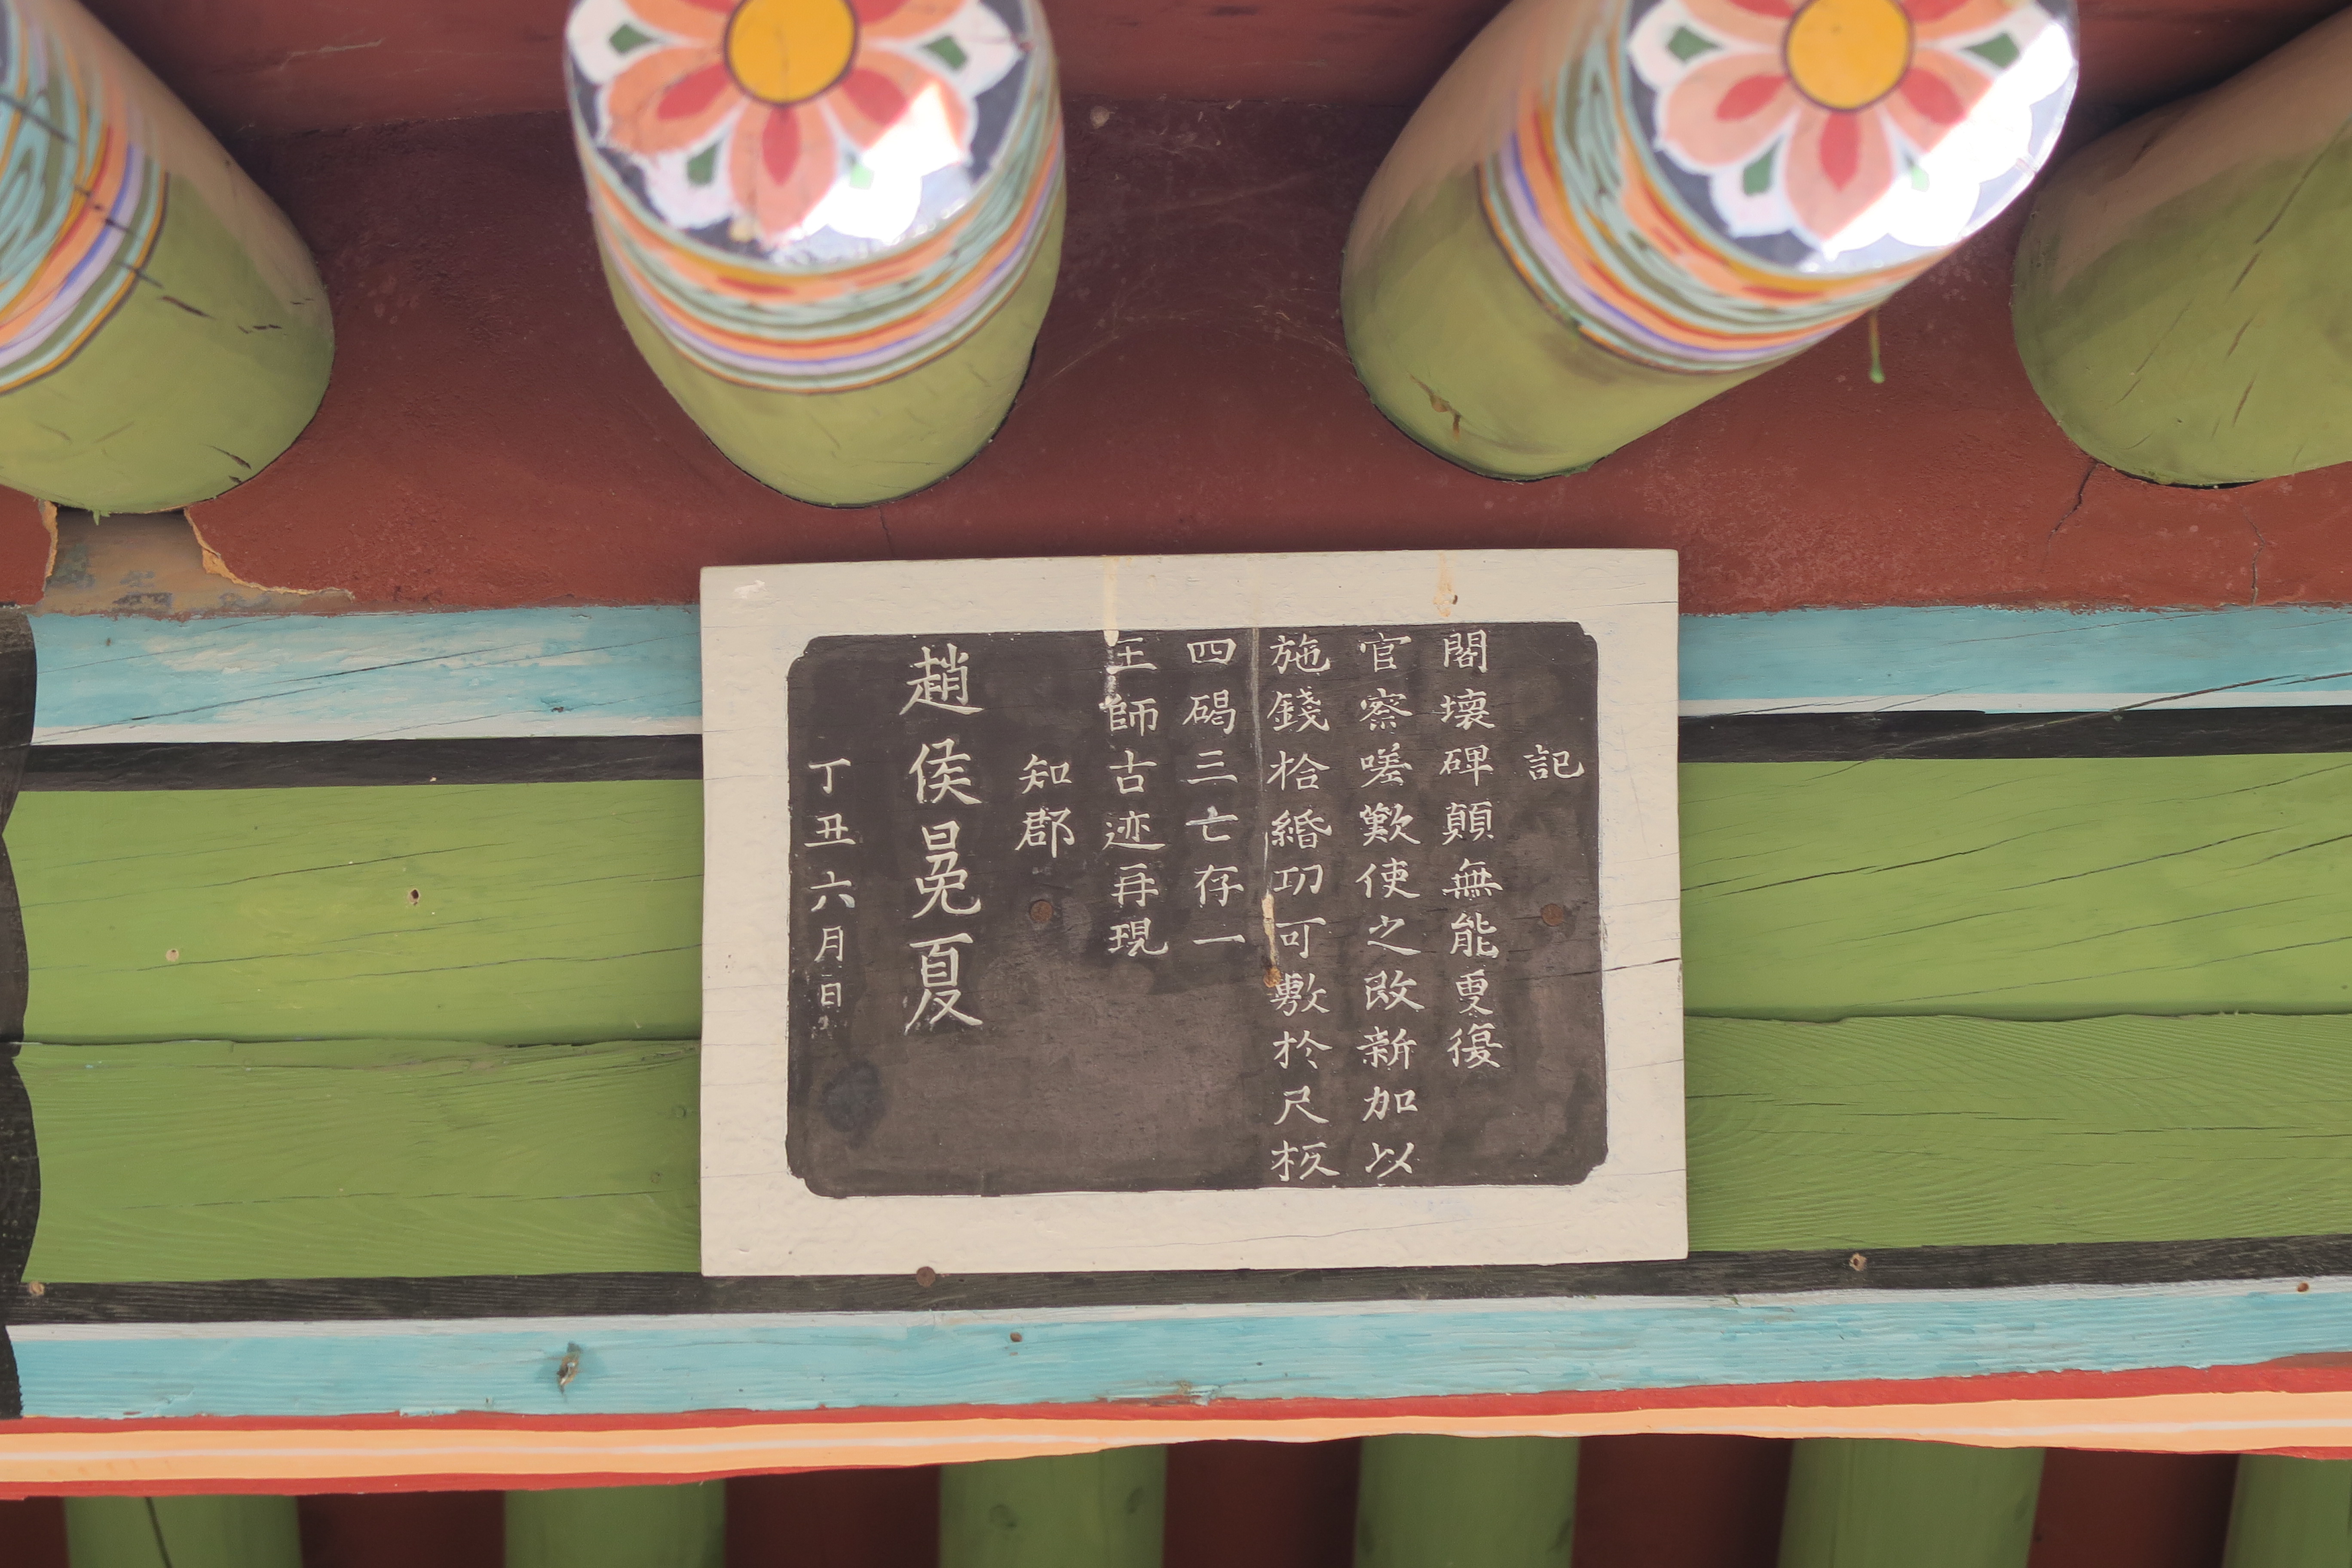 記
閣壞碑顛無能更復
官察嗟歎使之改新加以
施錢拾緡功可敷於尺核
四碣三亡存一
王師古迹再現
知郡
趙侯冕夏
丁丑六月日